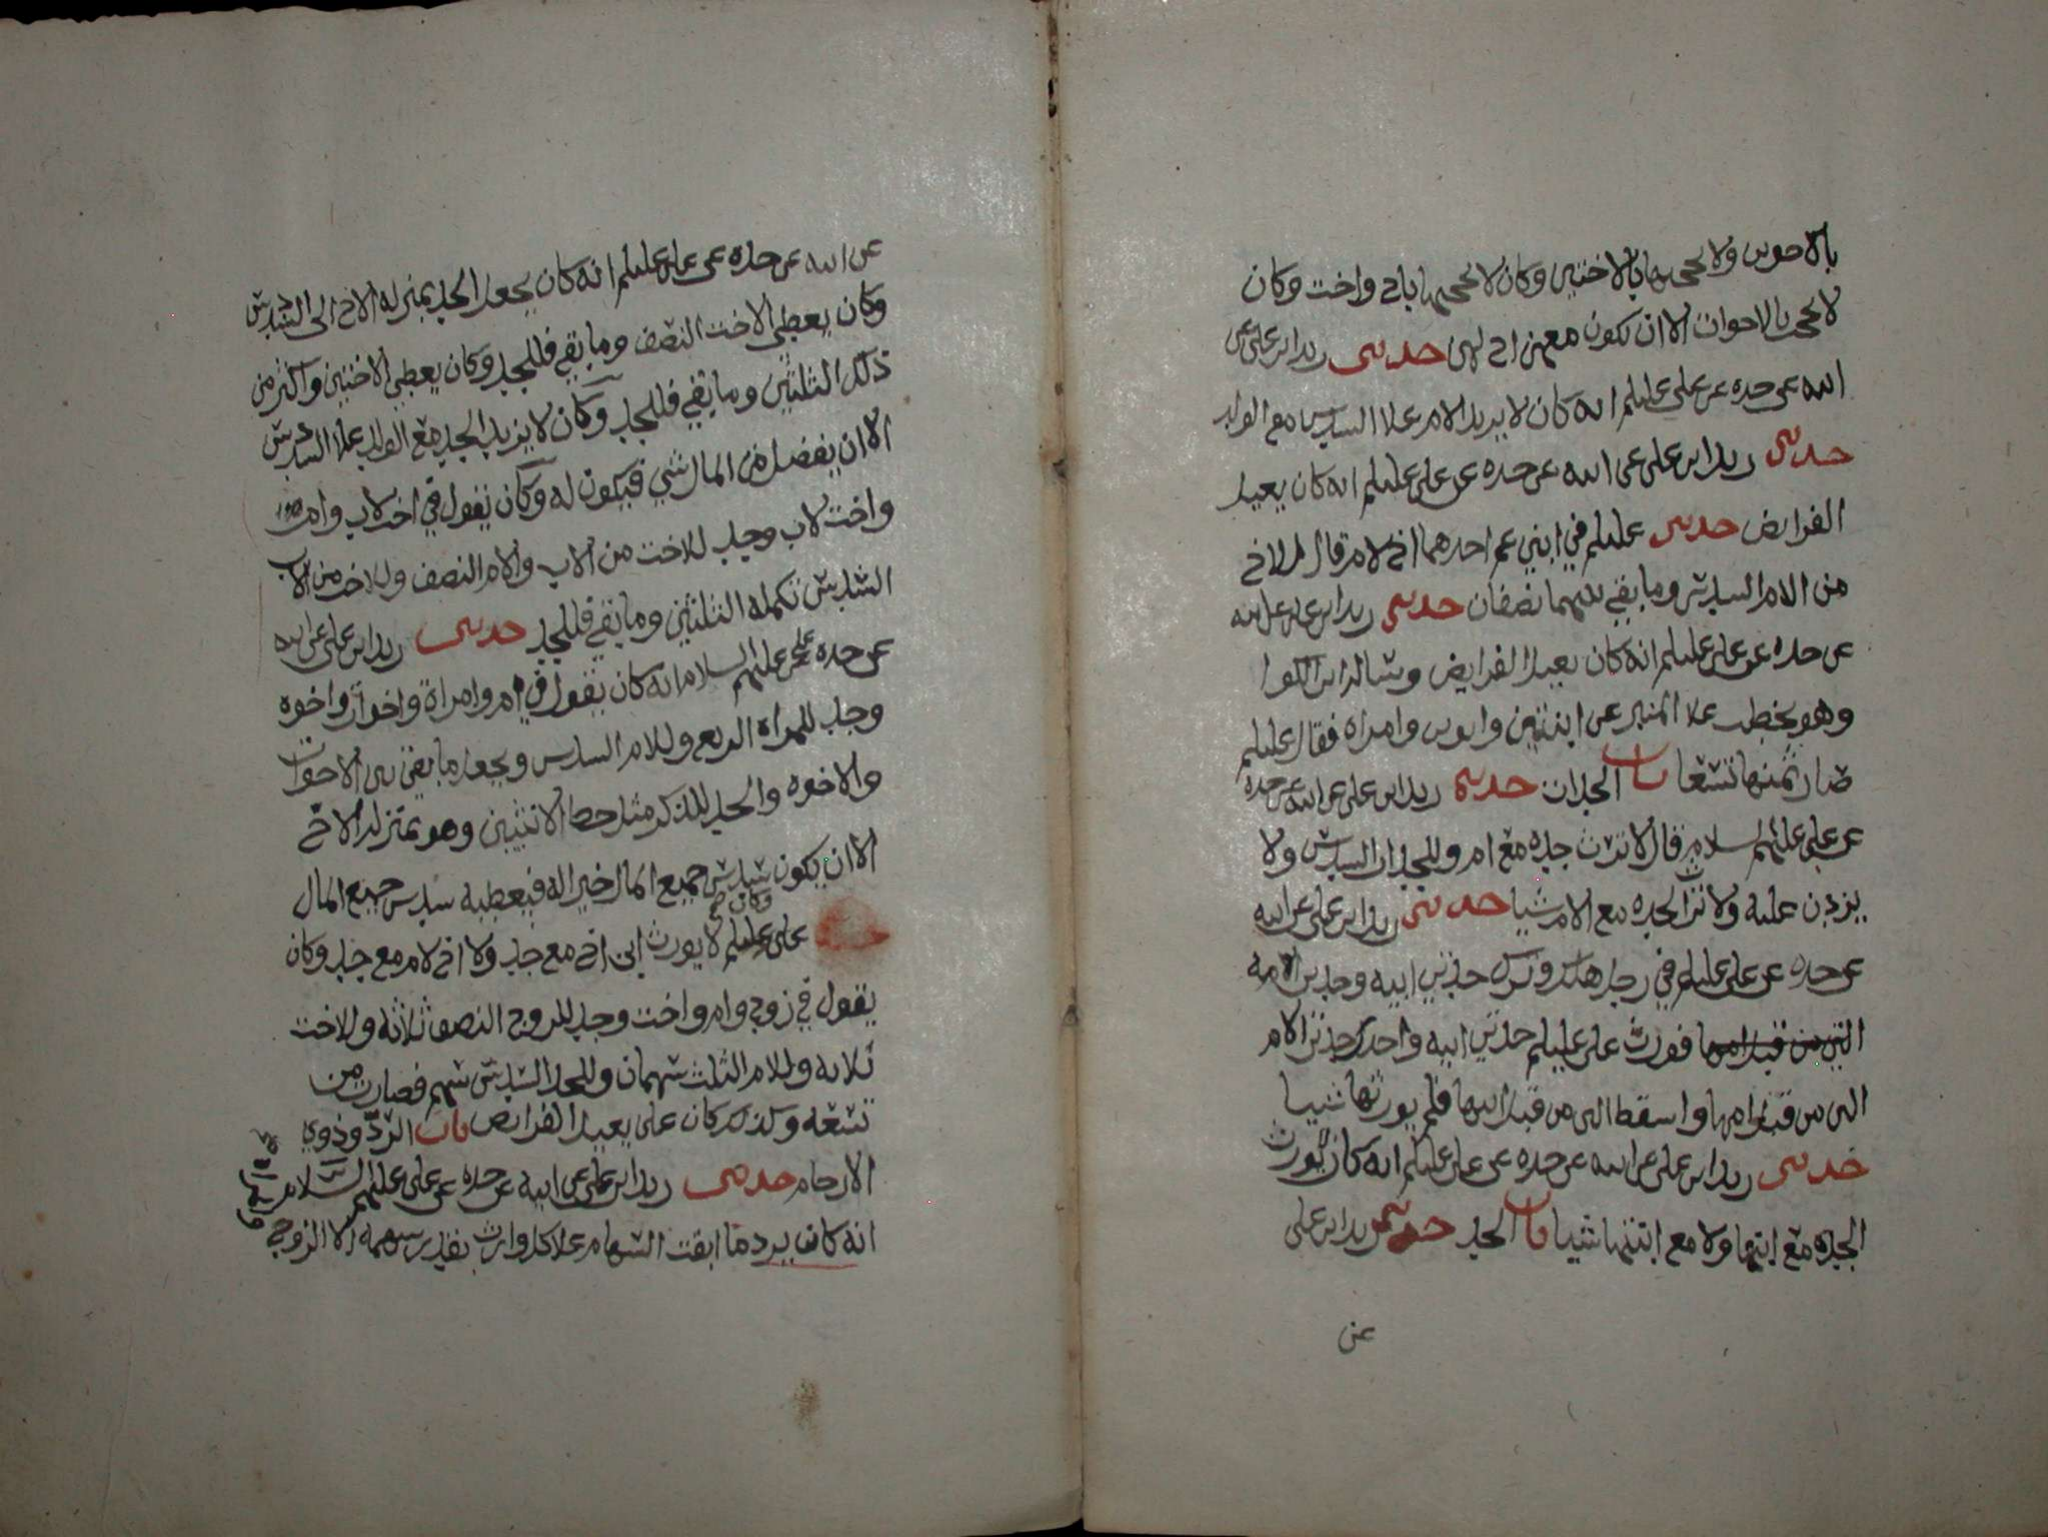 بالاخوين ولا يحجبها بالاختين وكان لا يحجبها باخ واخت وكان
لا يحجب بالاخوات الا ان تكون معهن اخ لهن حدثنى زيد ابن على عن
ابيه عن جده عن على عليلم انه كان لا يزيد الام على السدس مع الولد
حدثنى زيد ابن على عن ابيه عن جده عن على عليلم انه كان يعيل
الفرايض حدثنى عليلم في ابني عم احدهما اخ لام قال للاخ
من الام السدس وما بقي بينهما نصفان حدثنى زيد ابن على عن ابيه
عن جده عن على عليلم انه كان يعيل الفرايض وساله ابن الكوا
وهو يخطب علا المنبر عن ابنتين وابوين وامراه فقال عليلم
صار ثمنها تسعا باب الجدات حدثنى زيد ابن على عن ابيه عن جده
عن على عليهم السلام قال لا ترث جده مع ام وللجدات السدس ولا
يزدن عليه ولا ترث الجده مع الام شيا حدثنى زيد ابن على عن ابيه
عن جده عن على عليلم في رجل هلك وترك جدتي ابيه وجدتي امه
التي من قبل امها فورث على عليلم جدتي ابيه واحدى جدتي الام
التى من قبل امها واسقط التى من قبل ابيها فلم يورثها شيا
حدثنى زيد ابن على عن ابيه عن جده عن على عليلم انه كان لا يورث
الجده مع ابنها ولا مع ابنتها شيا باب الجد حدثنى زيد ابن على
عن
عن ابيه عن جده عن على عليلم انه كان يجعل الجد بمنزله الاخ الى السدس
وكان يعطي الاخت النصف وما بقي فللجد وكان يعطي الاختين واكثر من
ذلك الثلثين وما بقي فللجد وكان لا يزيد الجد مع الولد علا السدس
الا ان يفضل من المال شي فيكون له وكان يقول في اخت لاب وام
واخت لاب وجد للاخت من الاب والام النصف وللاخت من الاب
السدس تكمله الثلثين وما بقي فللجد حدثنى زيد ابن على عن ابيه
عن جده عن على عليهم السلام انه كان يقول في ام وامراة واخوات واخوه
وجد للمراه الربع وللام السدس ويجعل ما بقي بين الاخوات
والاخوه والجد للذكر مثل حظ الانثيين وهو بمنزله الاخ
الا ان يكون سدس جميع المال خير اله فيعطيه سدس جميع المال
وكان على عليلم لا يورث ابن اخ مع جد ولا اخ لام مع جد وكان
يقول في زوج وام واخت وجد للزوج النصف ثلاثه وللاخت
ثلاثه وللام الثلث سهمان وللجد السدس سهم فصارت من
تسعه وكذلك كان على يعيل الفرايض باب الرد وذوي
الارحام حدثنى زيد ابن على عن ابيه عن جده عن على عليهم السلام
انه كان يرد ما ابقت السهام علا كل وارث بقدر سهمه الا الزوج